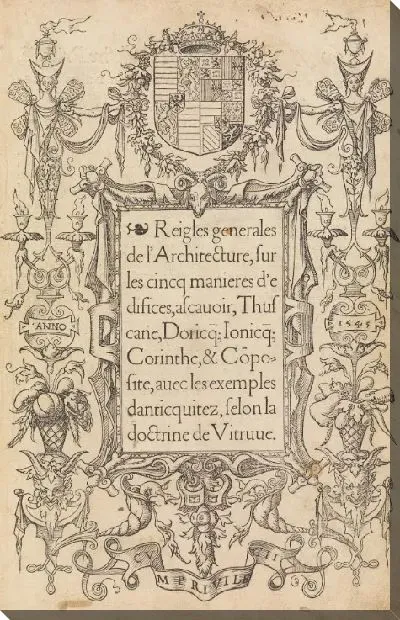 Reigles generales
de l'Architecture, sur
les cincq manieres d'e
difices, ascauoir, Thus
cane, Doricq; Ionicq;
Corinthe, & Cōpo-
site, auec les exemples
danticquitez, selon la
doctrine de Vitruue.
ANNO
1545
M PRIVILE